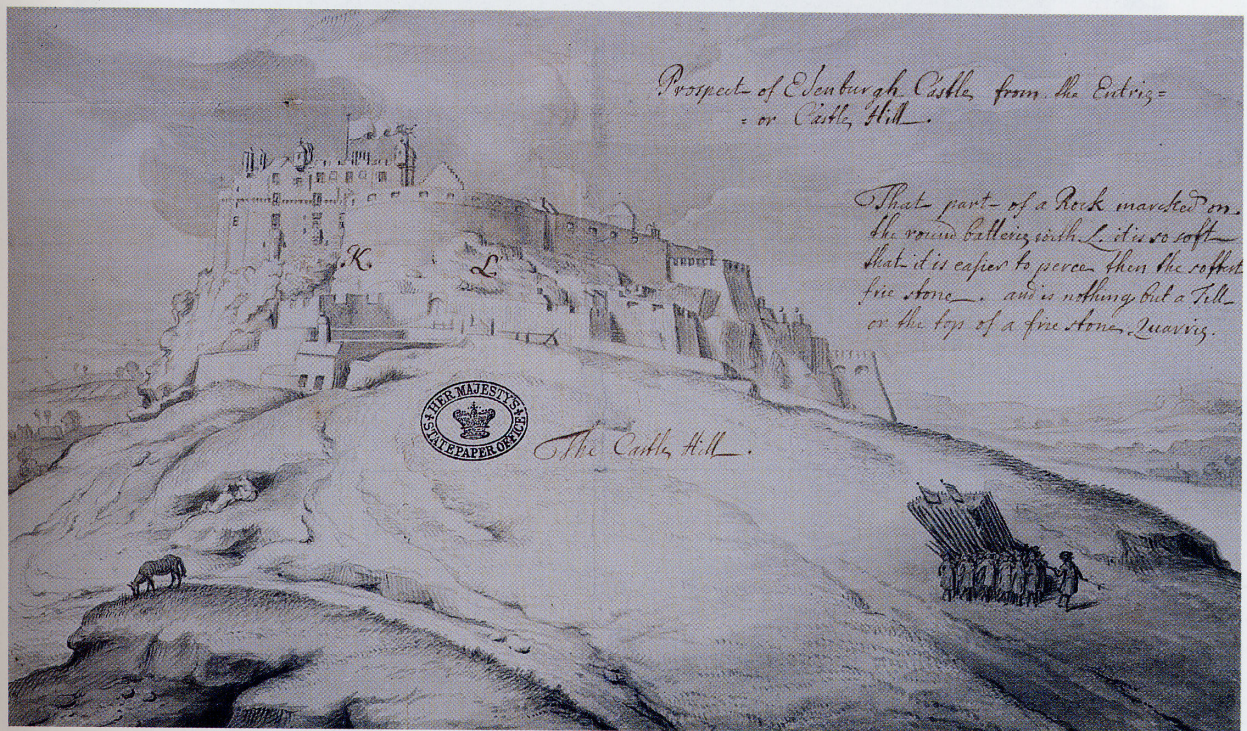 Prospect of Edenburgh Castle from the Entrie=
= or Castle Hill.
That part of a Rock marcked on
the round batterie with L. it is so soft
that it is easier to perce then the softest
frie stone. and is nothing but a Till
or the top of a frie stone Quarrie.
K
L
HER MAJESTY'S
STATE PAPER OFFICE
The Castle Hill.